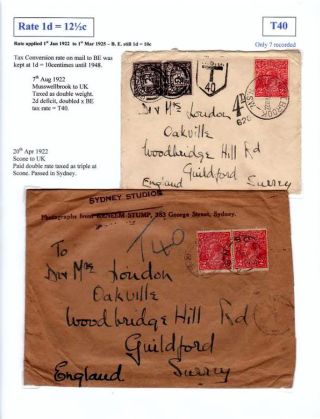 Rate 1d = 12½c
T40
Rate applied 1st Jan 1922 to 1st Mar 1925 - B.E. still 1d = 10c
Only 7 recorded
Tax Conversion rate on mail to BE was
kept at 1d = 10centimes until 1948.
7th Aug 1922
Musswellbrook to UK
Taxed as double weight.
2d deficit, doubled x BE
tax rate = T40.
20th Apr 1922
Scone to UK
Paid double rate taxed as triple at
Scone. Passed in Sydney.
T
40
4d
Div Mrs Loudon
Oakville
Woodbridge Hill Rd
Guildford
England Surrey
SYDNEY STUDIOS
Photographs from KENELM STUMP, 353 George Street, Sydney.
T40
To
Div Mrs Loudon
Oakville
Woodbridge Hill Rd
Guildford
England Surrey